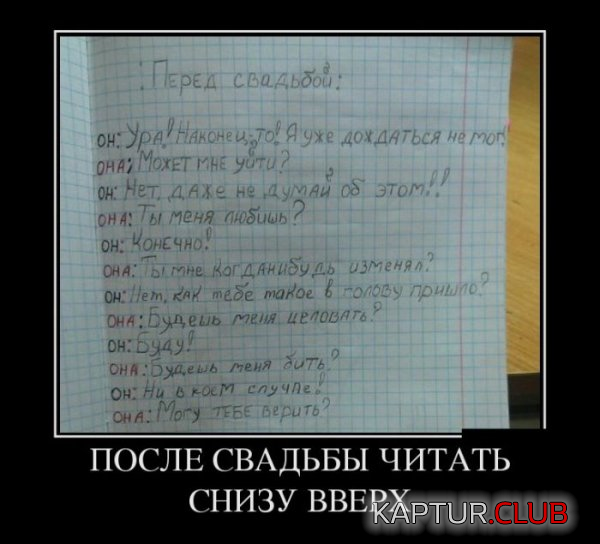 Перед свадьбой:
он: Ура! Наконец-то! Я уже дождаться не мог!
она: Может мне уйти?
он: Нет, даже не думай об этом!!
она: Ты меня любишь?
он: Конечно!
она: Ты мне когданибудь изменял?
он: Нет, как тебе такое в голову пришло?
она: Будешь меня целовать?
он: Буду!
она: Будешь меня бить?
он: Ни в коем случае!
она: Могу тебе верить?
ПОСЛЕ СВАДЬБЫ ЧИТАТЬ
СНИЗУ ВВЕРХ
KAPTUR.CLUB